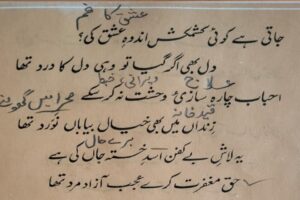 عشق کا غم
جاتی ہے کوئی کشمکش اندوہِ عشق کی؟
دل بھی اگر گیا تو وہی دل کا درد تھا
علاج
احباب چارہ سازیِٔ وحشت نہ کر سکے
قید خانہ
زنداں میں بھی خیال بیاباں نورد تھا
برے حال
یہ لاشِ بے کفن اسدِؔ خستہ جاں کی ہے
حق مغفرت کرے عجب آزاد مرد تھا